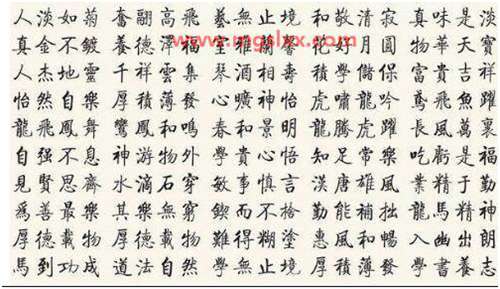 人淡如菊 奮翮高飛 藝無止境 和敬清寂 真味是淡
真金不鍍 養德澤福 好月圓 物華天寶
人杰地靈 千祥雲集 琴酒相壽 積學儲 富貴吉祥
怡然自樂 厚積薄發 心曠神怡 虎嘯龍吟 鳶飛魚躍
龍飛鳳舞 鸞鳳和鳴 春和景明 龍騰虎躍 長風萬裏
自强不息 神游物外 學貴心悟 知足常樂 吃虧是福
見賢思齊 水滴石穿 敏事慎言 漢唐雄風 業精于勤
爲善最樂 其樂無窮 鍥而不捨 勤能補拙 龍馬精神
厚德載物 厚德載物 難得糊塗 惠風和暢 入幽出朗
馬到功成 道法自然 學無止境 厚積薄發 學書養志